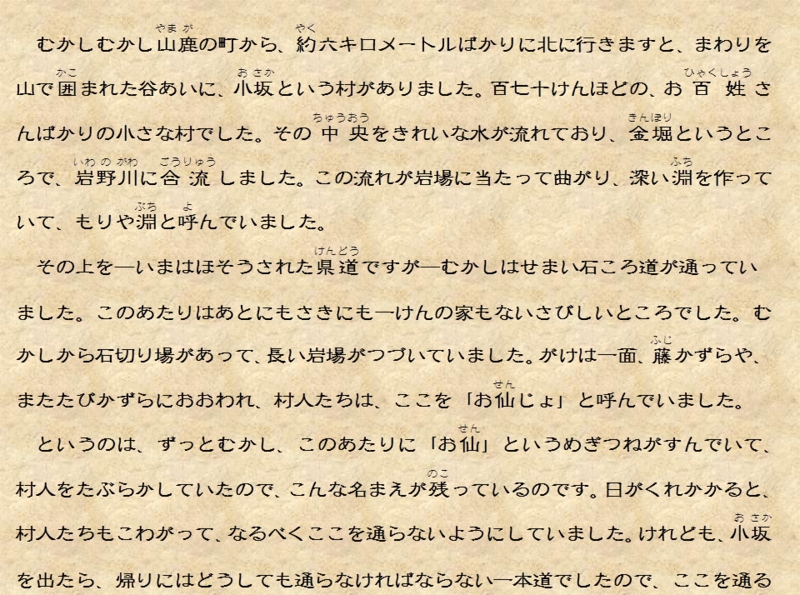 むかしむかし山鹿の町から、約六キロメートルばかりに北に行きますと、まわりを
山で囲まれた谷あいに、小坂という村がありました。百七十けんほどの、お百姓さ
んばかりの小さな村でした。その中央をきれいな水が流れており、金堀というとこ
ろで、岩野川に合流しました。この流れが岩場に当たって曲がり、深い淵を作って
いて、もりや淵と呼んでいました。
その上を―いまはほそうされた県道ですが―むかしはせまい石ころ道が通ってい
ました。このあたりはあとにもさきにも一けんの家もないさびしいところでした。む
かしから石切り場があって、長い岩場がつづいていました。がけは一面、藤かずらや、
またたびかずらにおおわれ、村人たちは、ここを「お仙じょ」と呼んでいました。
というのは、ずっとむかし、このあたりに「お仙」というめぎつねがすんでいて、
村人をたぶらかしていたので、こんな名まえが残っているのです。日がくれかかると、
村人たちもこわがって、なるべくここを通らないようにしていました。けれども、小坂
を出たら、帰りにはどうしても通らなければならない一本道でしたので、ここを通る